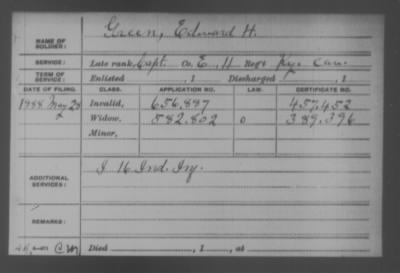 NAME OF SOLDIER: Green, Edward H.
SERVICE: Late rank, Capt. Co. E, 11 Reg't Ky. Cav.
TERM OF SERVICE: Enlisted , 1 Discharged , 1
DATE OF FILING. CLASS. APPLICATION NO. LAW. CERTIFICATE NO.
1888 May 28 Invalid, 656.887 457.452
Widow, 582.802 0 389.396
Minor,
ADDITIONAL SERVICES: I 16 Ind. Inf.
REMARKS:
Died , 1 , at